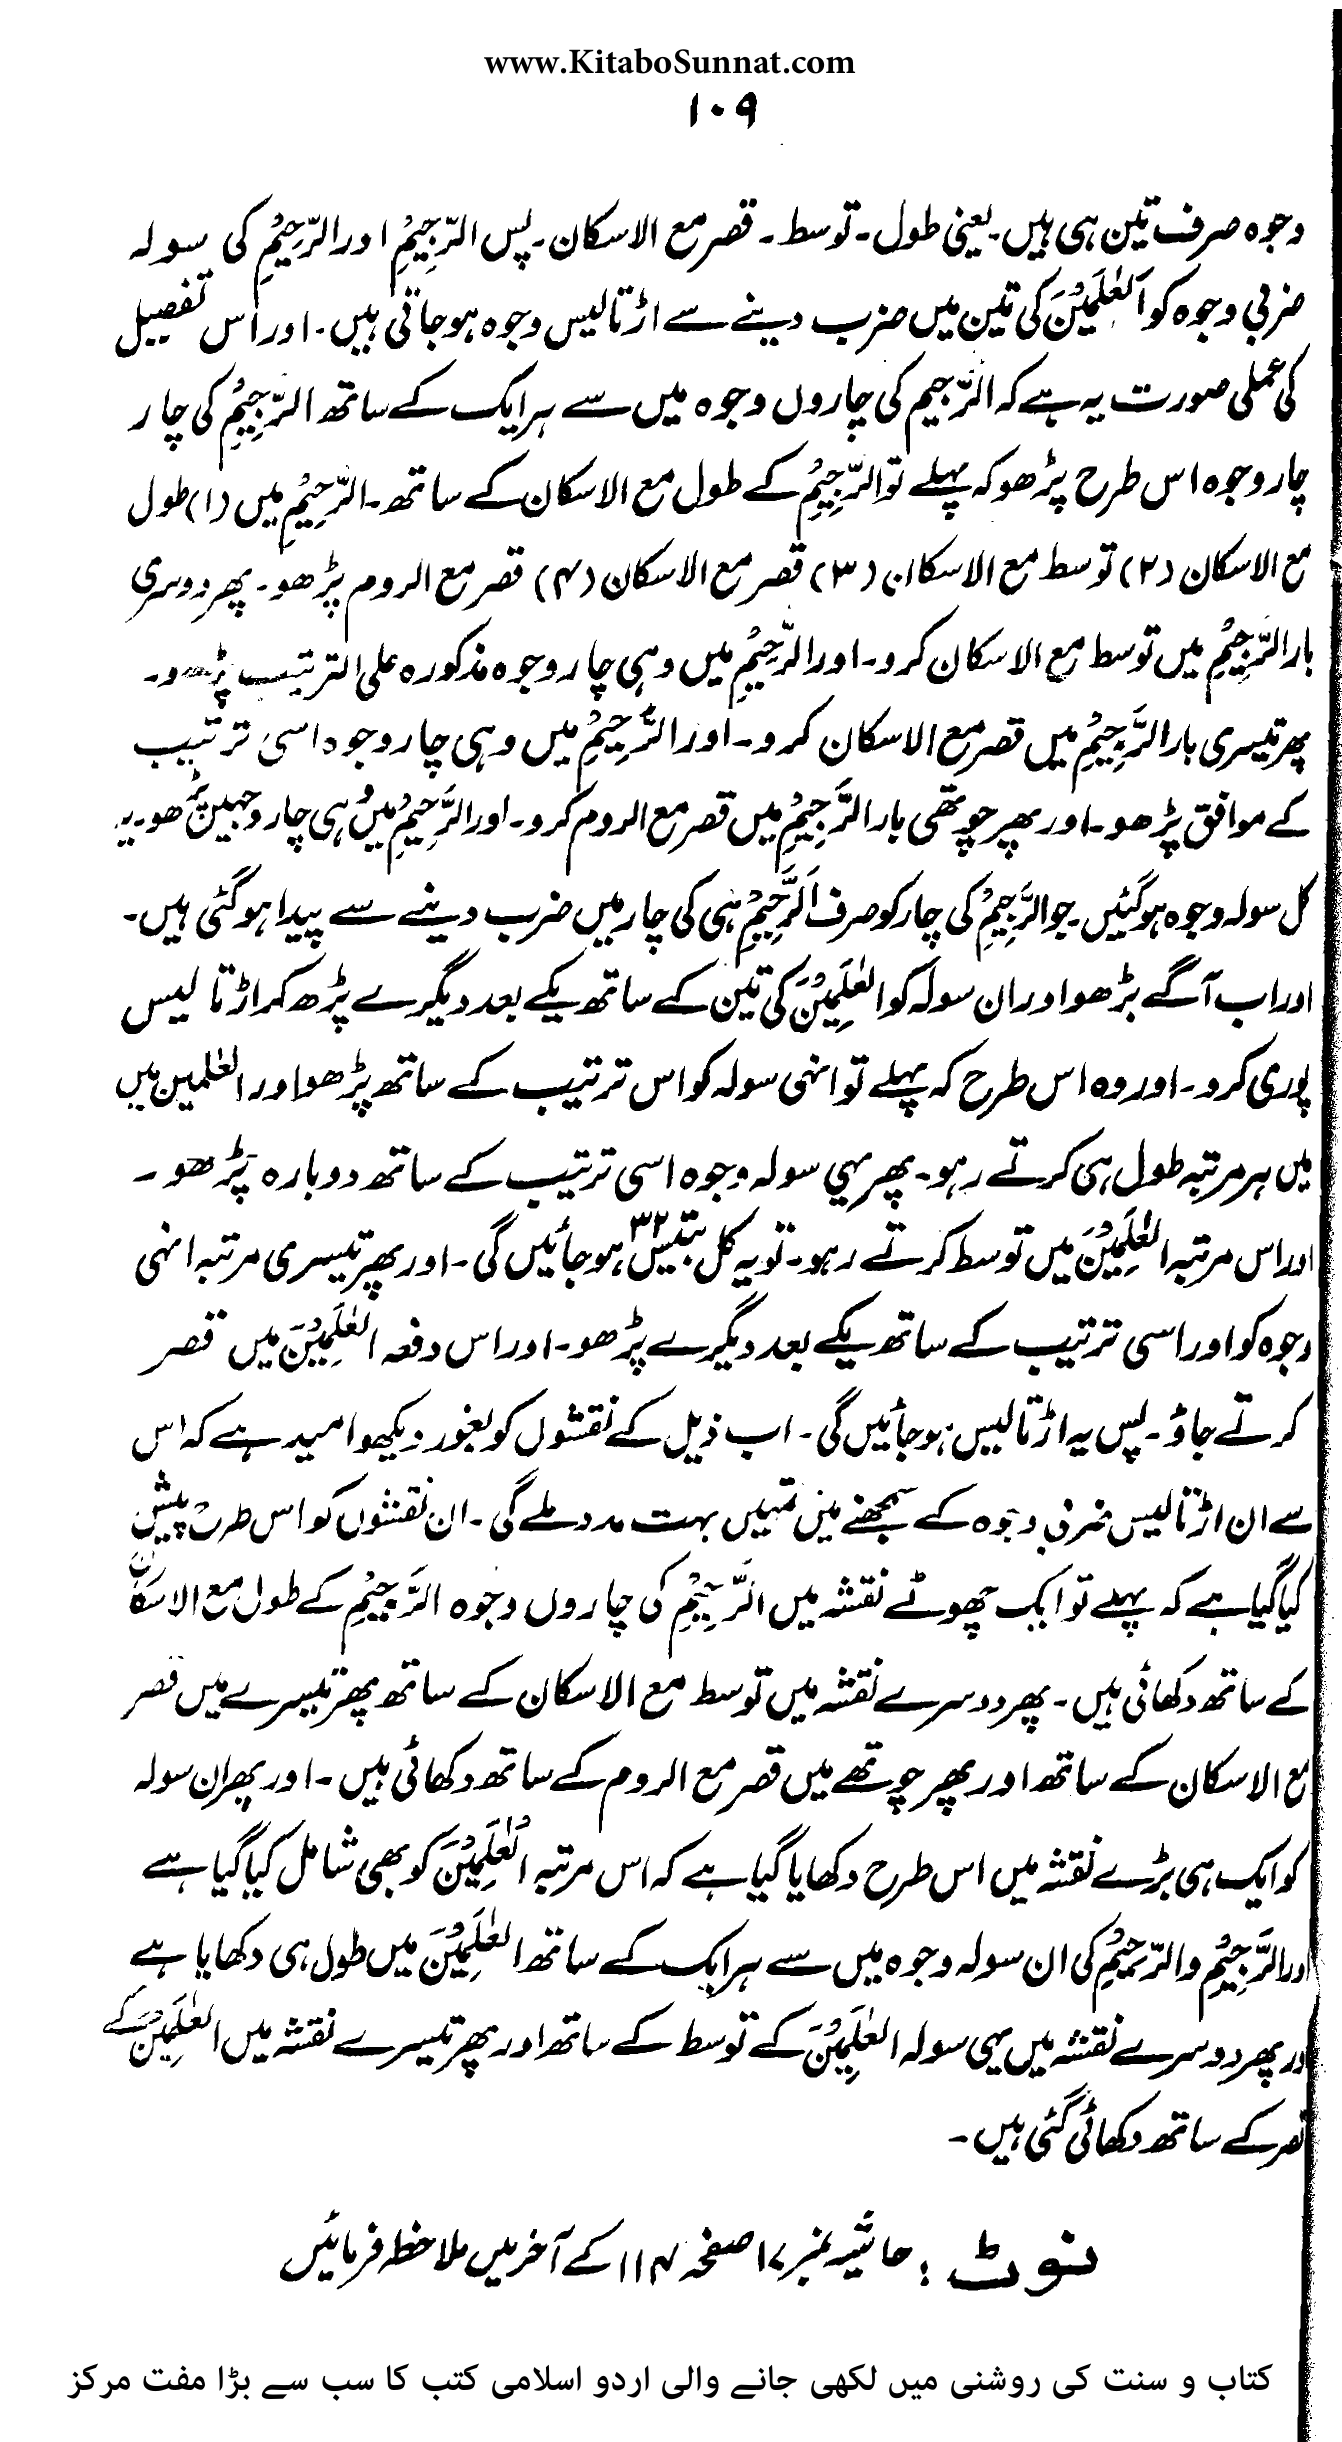 www.KitaboSunnat.com
۱۰۹
وجوہ صرف تین ہی ہیں۔ یعنی طول۔ توسط۔ قصر مع الاسکان۔ پس الرَّجِیْمِ اور الرَّحِیْمِ کی سولہ
ضربی وجوہ کو اَلْعٰلَمِیْنَ کی تین میں ضرب دینے سے اڑتالیس وجوہ ہو جاتی ہیں۔ اور اس تفصیل
کی عملی صورت یہ ہے کہ الرَّجیم کی چاروں وجوہ میں سے ہر ایک کے ساتھ الرَّحِیْمِ کی چار
چار وجوہ اس طرح پڑھو کہ پہلے تو الرَّجِیْمِ کے طول مع الاسکان کے ساتھ۔ الرَّحِیْمِ میں (۱) طول
مع الاسکان (۲) توسط مع الاسکان (۳) قصر مع الاسکان (۴) قصر مع الروم پڑھو۔ پھر دوسری
بار الرَّجِیْمِ میں توسط مع الاسکان کرو۔ اور الرَّحِیْمِ میں وہی چار وجوہ مذکورہ علی الترتیب پڑھو۔
پھر تیسری بار الرَّجِیْمِ میں قصر مع الاسکان کرو۔ اور الرَّحِیْمِ میں وہی چار وجوہ اسی ترتیب
کے موافق پڑھو۔ اور پھر چوتھی بار الرَّجِیْمِ میں قصر مع الروم کرو۔ اور الرَّحِیْمِ میں وہی چار وجہیں پڑھو۔ یہ
کل سولہ وجوہ ہو گئیں۔ جو الرَّجِیْمِ کی چار کو صرف اَلرَّحِیْمِ ہی کی چار میں ضرب دینے سے پیدا ہو گئی ہیں۔
اور اب آگے بڑھو اور ان سولہ کو الْعٰلَمِیْنَ کی تین کے ساتھ یکے بعد دیگرے پڑھ کر اڑتالیس
پوری کرو۔ اور وہ اس طرح کہ پہلے تو انہی سولہ کو اس ترتیب کے ساتھ پڑھو اور العٰلمین میں
میں ہر مرتبہ طول ہی کرتے رہو۔ پھر یہی سولہ وجوہ اسی ترتیب کے ساتھ دوبارہ پڑھو۔
اور اس مرتبہ الْعٰلَمِیْنَ میں توسط کرتے رہو۔ تو یہ کل بتیس ۳۲ ہو جائیں گی۔ اور پھر تیسری مرتبہ انہی
وجوہ کو اور اسی ترتیب کے ساتھ یکے بعد دیگرے پڑھو۔ اور اس دفعہ الْعٰلَمِیْنَ میں قصر
کرتے جاؤ۔ پس یہ اڑتالیس ہو جائیں گی۔ اب ذیل کے نقشوں کو بغور دیکھو امید ہے کہ اس
سے ان اڑتالیس ضربی وجوہ کے سمجھنے میں تمہیں بہت مدد ملے گی۔ ان نقشوں کو اس طرح پیش
کیا گیا ہے کہ پہلے تو ایک چھوٹے نقشہ میں الرَّحِیْمِ کی چاروں وجوہ الرَّجِیْمِ کے طول مع الاسکان
کے ساتھ دکھائی ہیں۔ پھر دوسرے نقشہ میں توسط مع الاسکان کے ساتھ پھر تیسرے میں قصر
مع الاسکان کے ساتھ اور پھر چوتھے میں قصر مع الروم کے ساتھ دکھائی ہیں۔ اور پھر ان سولہ
کو ایک ہی بڑے نقشہ میں اس طرح دکھایا گیا ہے کہ اس مرتبہ الْعٰلَمِیْنَ کو بھی شامل کیا گیا ہے
اور الرَّجِیْمِ والرَّحِیْمِ کی ان سولہ وجوہ میں سے ہر ایک کے ساتھ الْعٰلَمِیْنَ میں طول ہی دکھایا ہے
اور پھر دوسرے نقشہ میں یہی سولہ الْعٰلَمِیْنَ کے توسط کے ساتھ اور پھر تیسرے نقشہ میں الْعٰلَمِیْنَ کے
قصر کے ساتھ دکھائی گئی ہیں۔
نوٹ : حاشیہ نمبر ۱۷ صفحہ ۱۱۴ کے آخر میں ملاحظہ فرمائیں
کتاب و سنت کی روشنی میں لکھی جانے والی اردو اسلامی کتب کا سب سے بڑا مفت مرکز